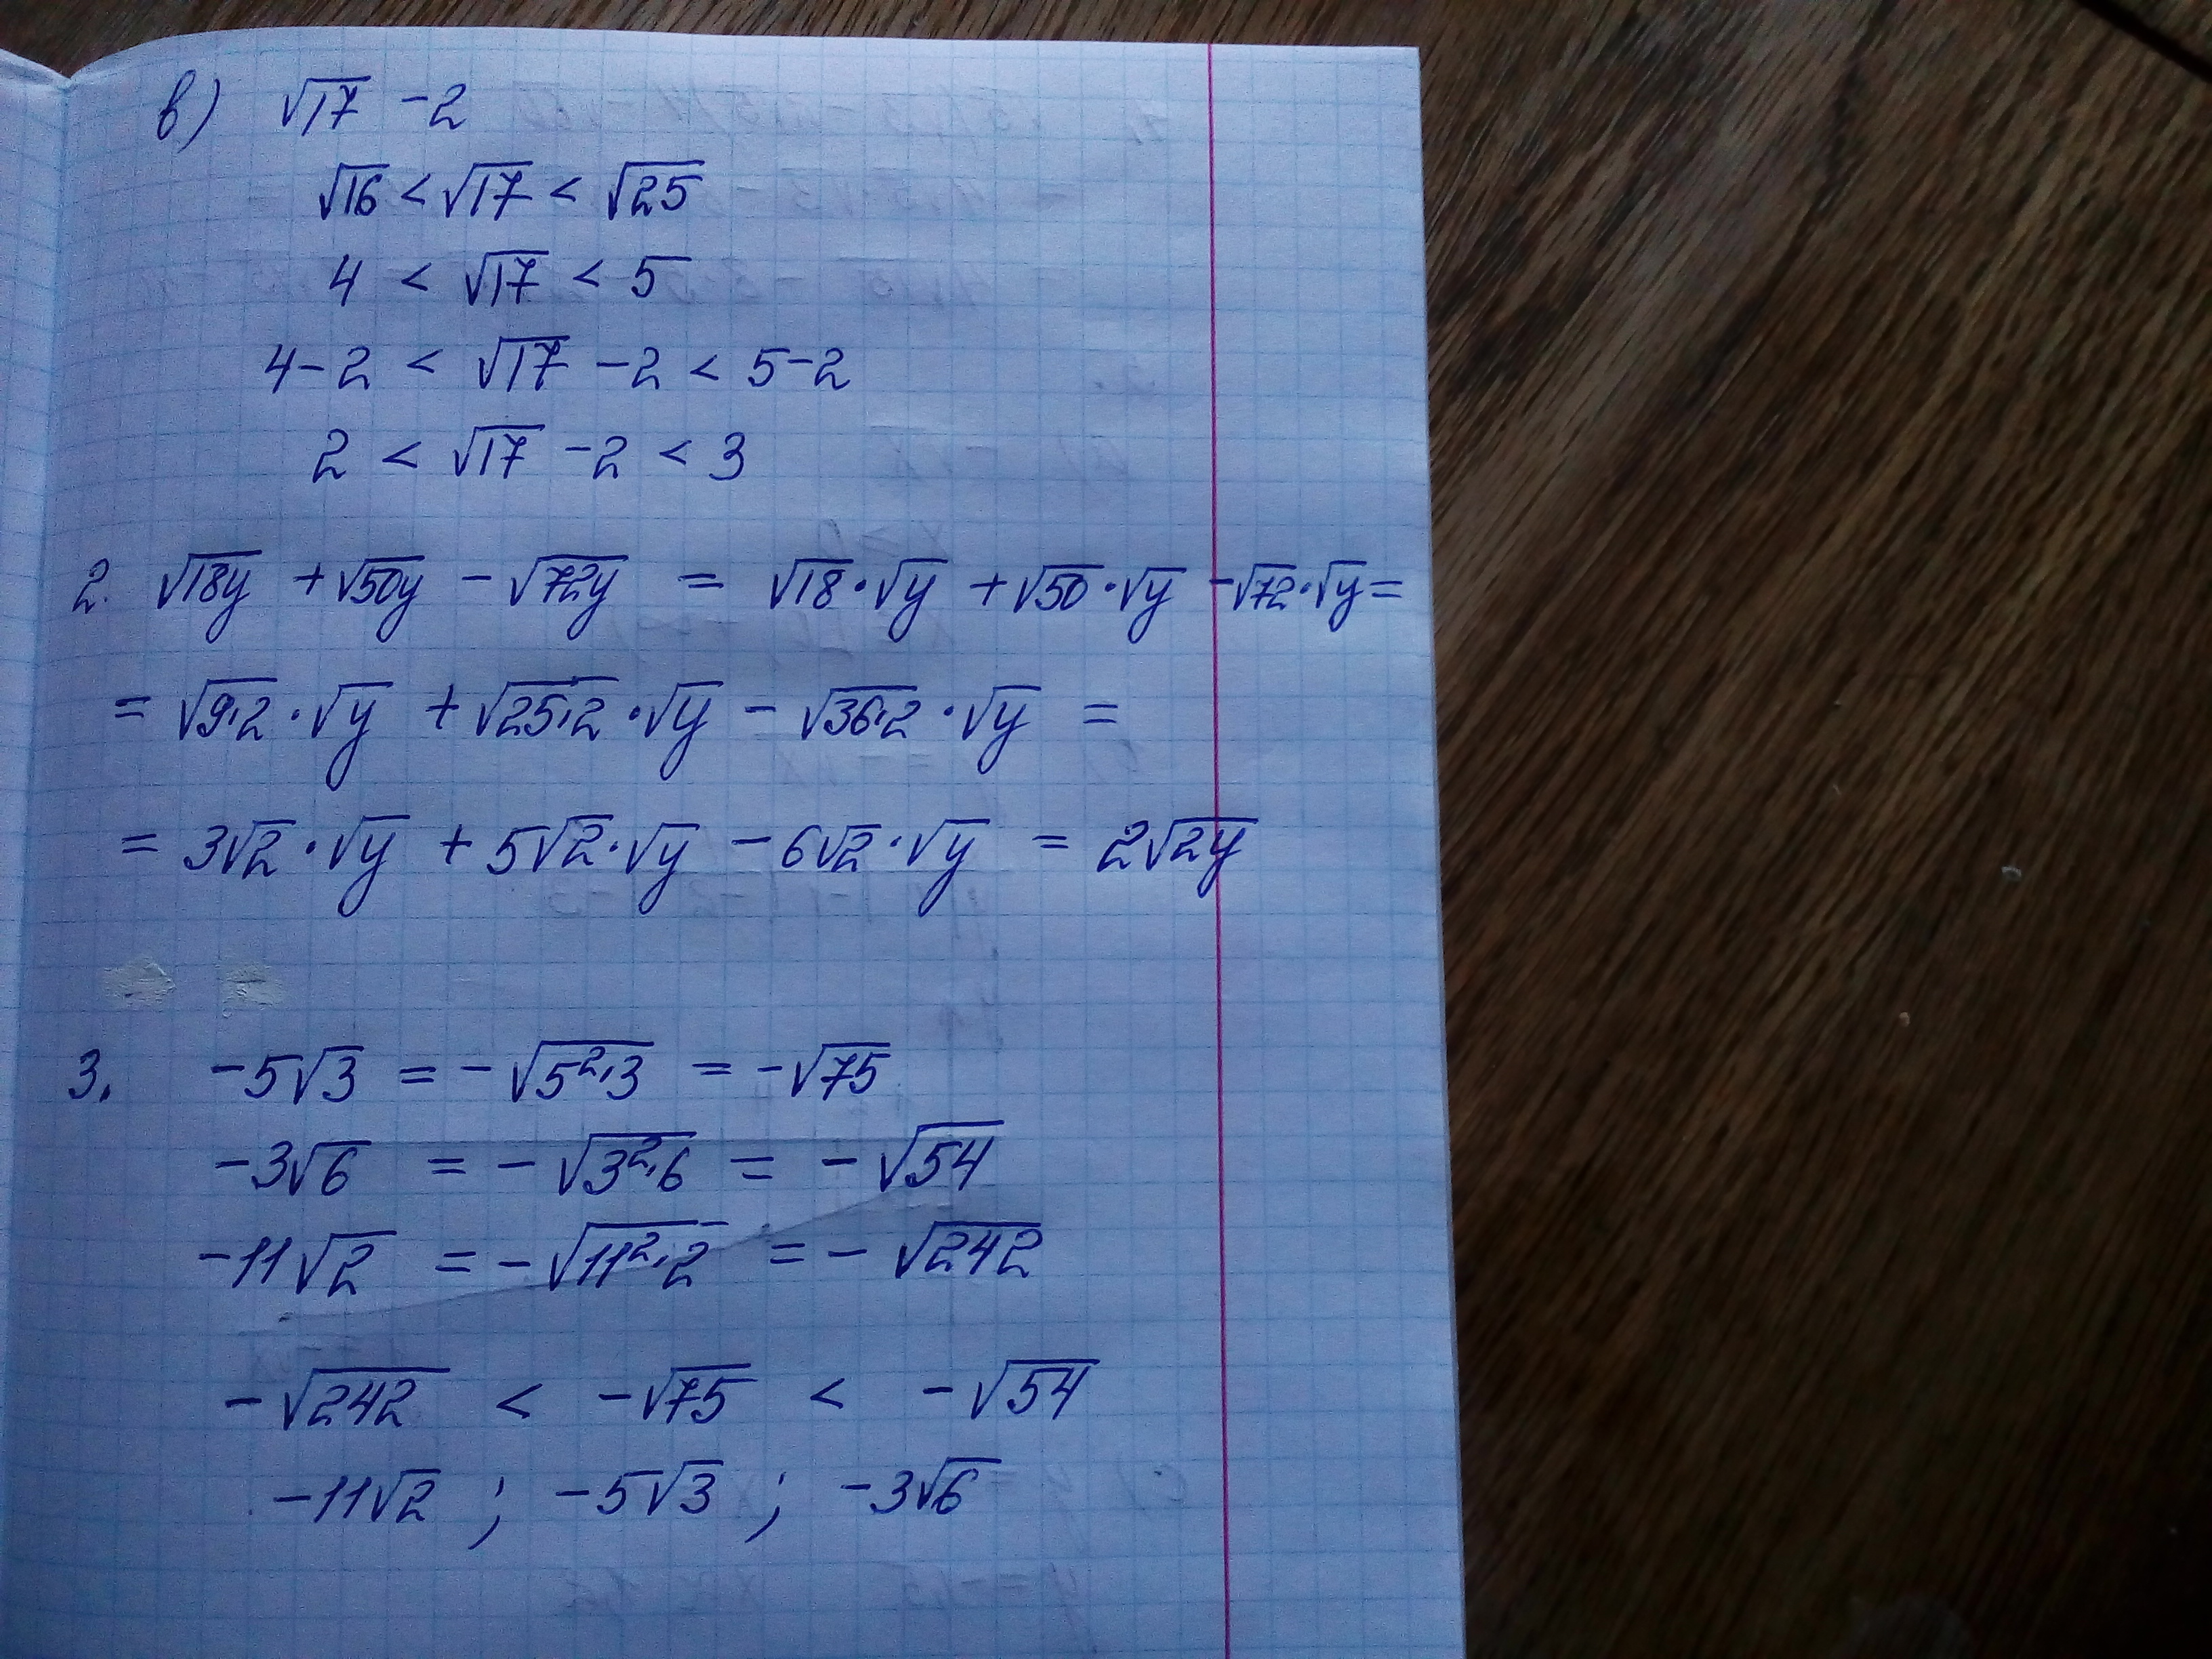 в) √17 - 2
√16 < √17 < √25
4 < √17 < 5
4-2 < √17 - 2 < 5-2
2 < √17 - 2 < 3
2. √18y + √50y - √72y = √18·√y + √50·√y - √72·√y =
= √9·2·√y + √25·2·√y - √36·2·√y =
= 3√2·√y + 5√2·√y - 6√2·√y = 2√2y
3. -5√3 = -√5²·3 = -√75
-3√6 = -√3²·6 = -√54
-11√2 = -√11²·2 = -√242
-√242 < -√75 < -√54
-11√2 ; -5√3 ; -3√6